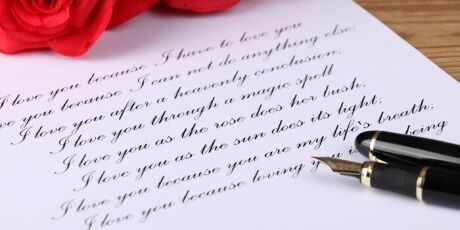 I love you because I have to love you
love you because I can not do anything else;
I love you after a heavenly conclusion;
I love you through a magic spell.
I love you as the rose does her bush;
I love you as the sun does its light;
I love you because you are my life's breath;
I love you because loving you is being